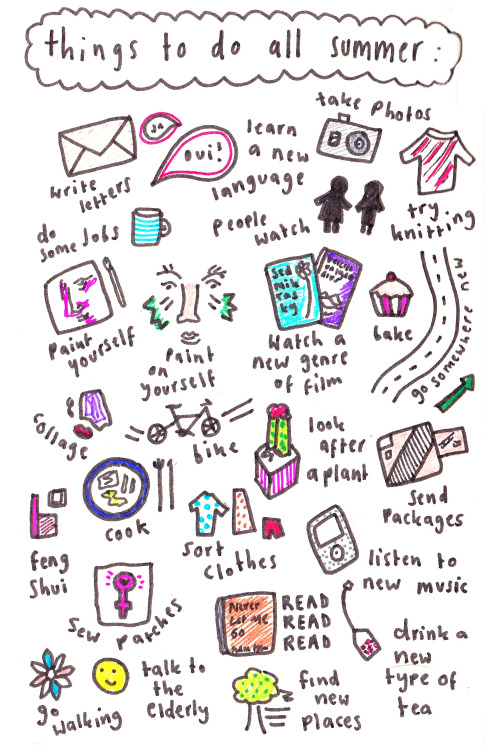 things to do all summer:
take photos
ja
oui!
learn
a new
language
write
letters
try
knitting
people
watch
do
some jobs
Paint
yourself
Paint
on
yourself
sed
mik
ras
ky
Watch a
new genre
of film
bake
go somewhere
new
collage
bike
look
after
a plant
send
packages
cook
sort
clothes
feng
shui
listen to
new music
sew patches
Never
Let Me
Go
READ
READ
READ
drink a
new
type of
tea
go
walking
talk to
the
elderly
find
new
places